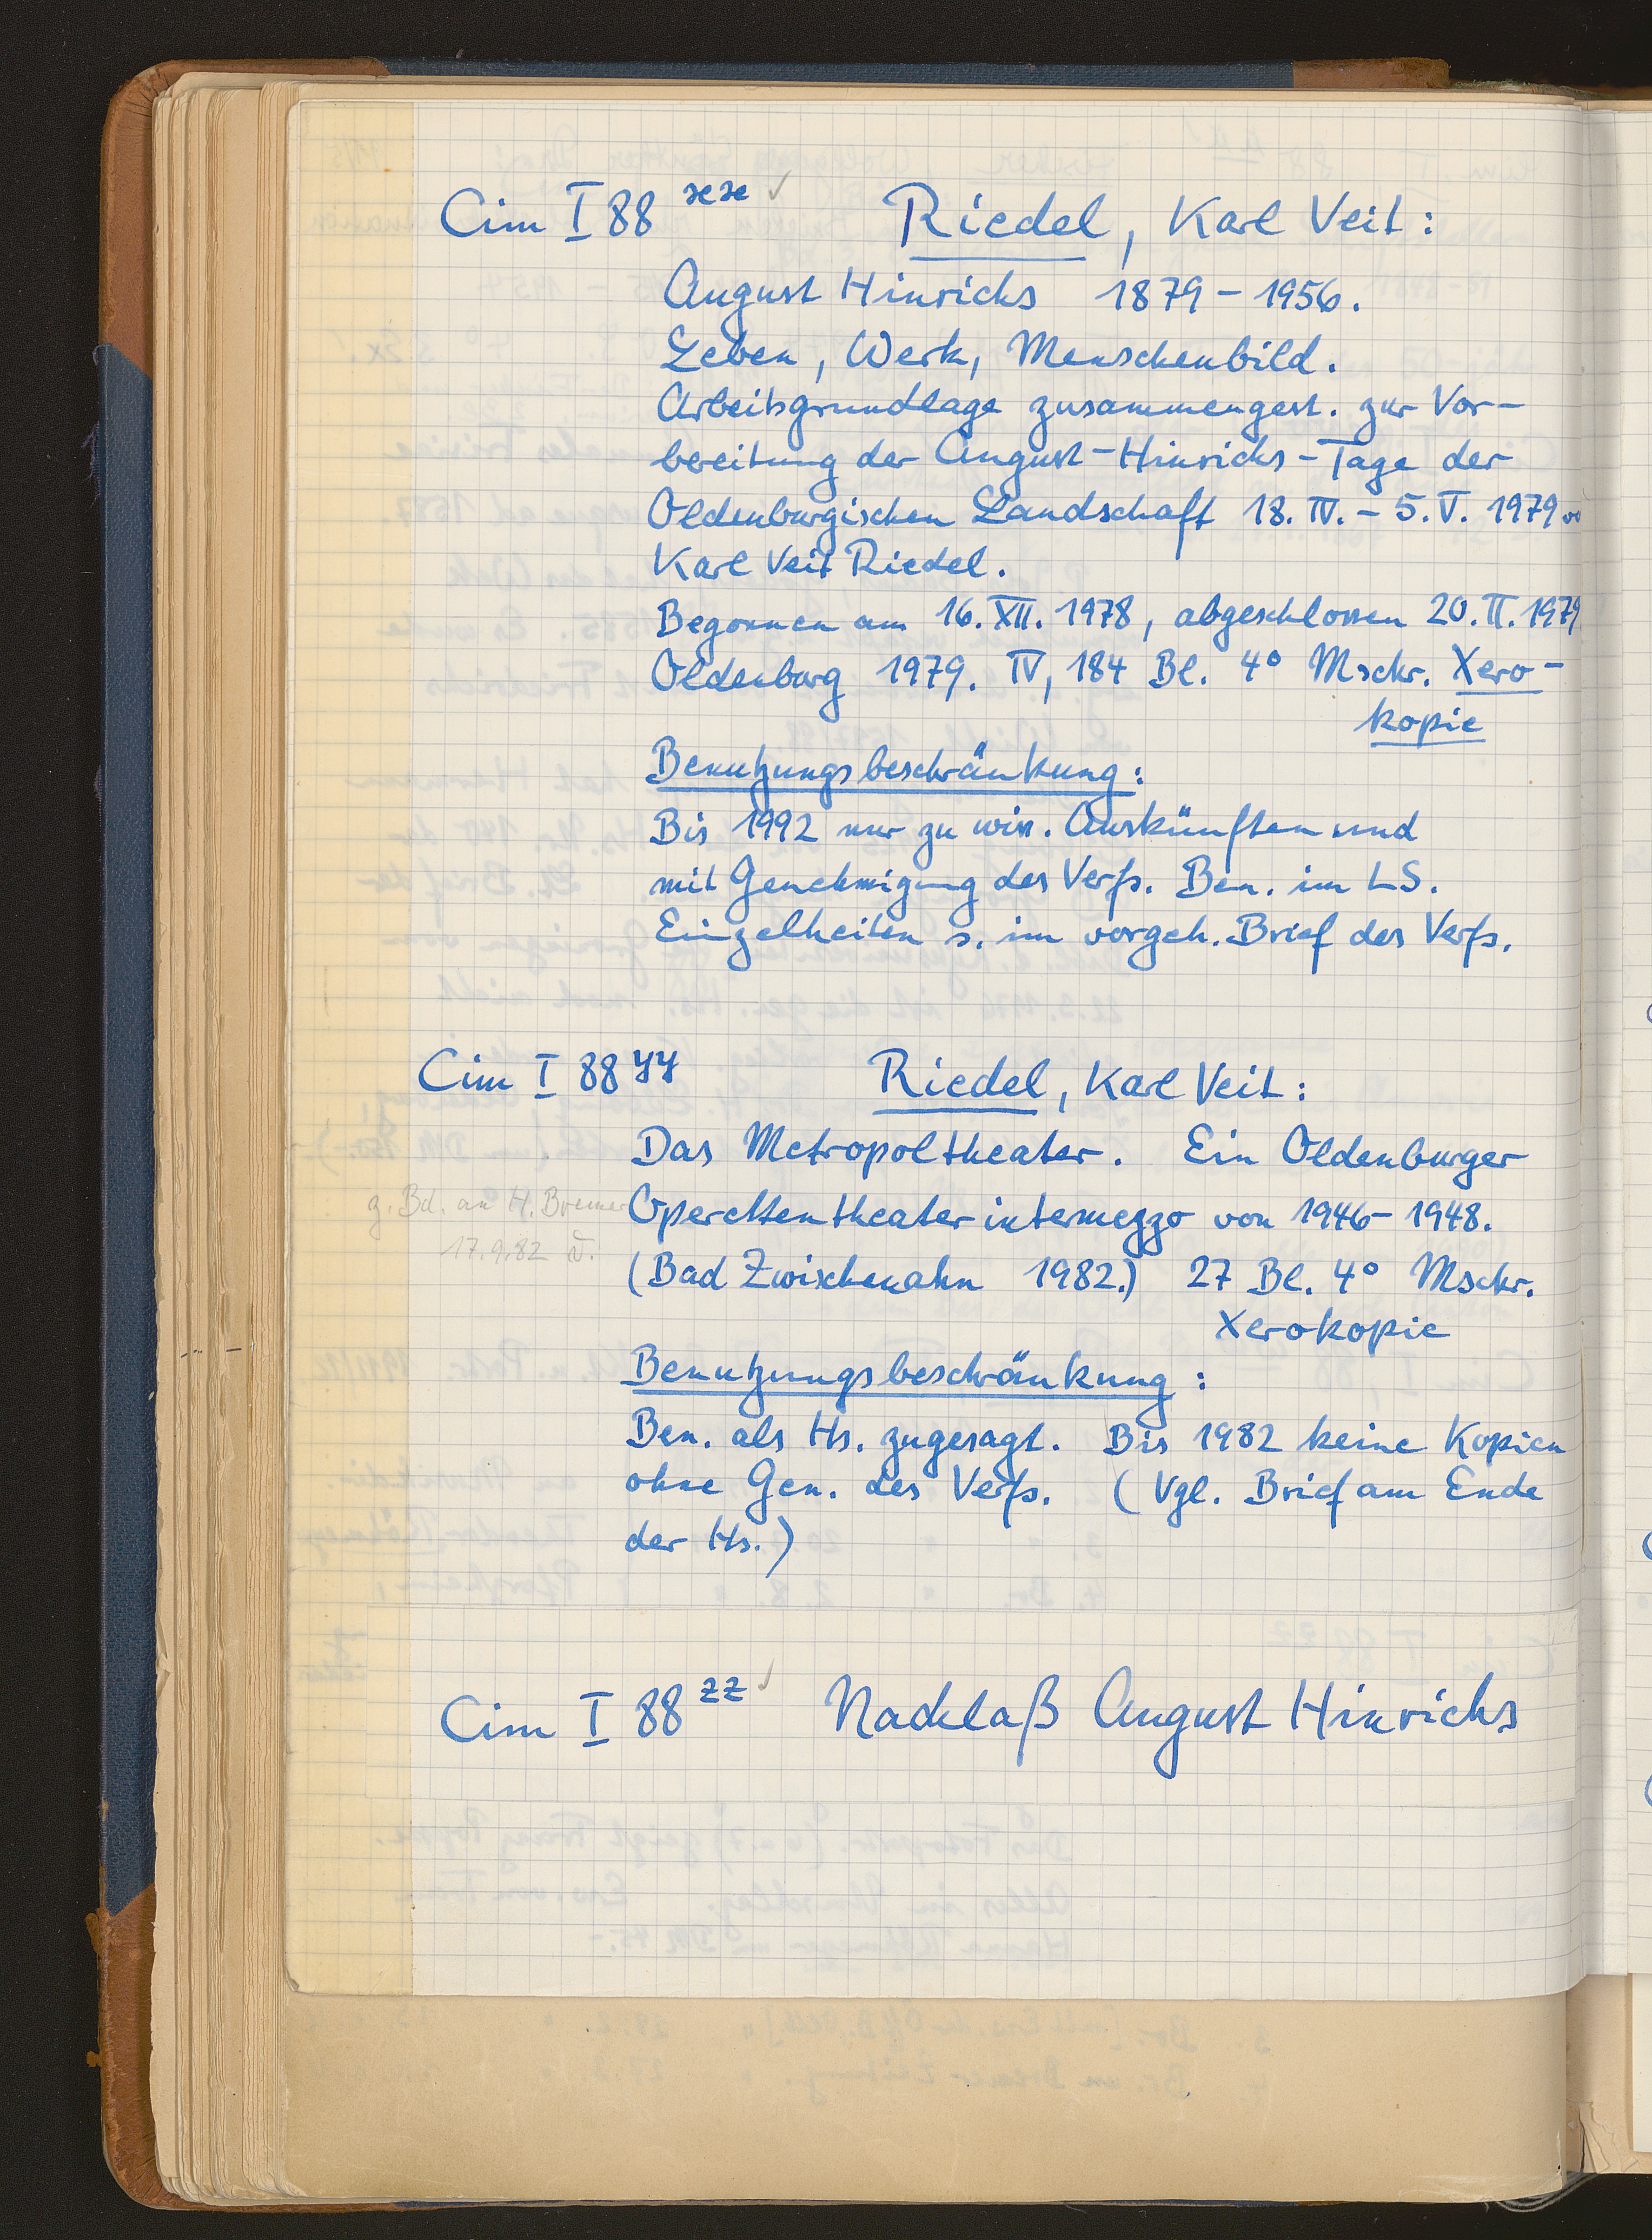 Cim I 88 xx ✓ Riedel, Karl Veit:
August Hinrichs 1879 – 1956.
Leben, Werk, Menschenbild.
Arbeitsgrundlage zusammengest. zur Vor-
bereitung der August-Hinrichs-Tage der
Oldenburgischen Landschaft 18. IV. – 5. V. 1979
Karl Veit Riedel.
Begonnen am 16. XII. 1978, abgeschlossen 20. II. 1979
Oldenburg 1979. IV, 184 Bl. 4° Mschr. Xero-
kopie
Benutzungsbeschränkung:
Bis 1992 nur zu wiss. Auskünften und
mit Genehmigung des Verfs. Ben. im LS.
Einzelheiten s. im vorgeh. Brief des Verfs.
Cim I 88 yy Riedel, Karl Veit:
Das Metropoltheater. Ein Oldenburger
g. Bd. an H. Bremer
Operettentheaterintermezzo von 1946 – 1948.
17.9.82
(Bad Zwischenahn 1982.) 27 Bl. 4° Mschr.
Xerokopie
Benutzungsbeschränkung:
Ben. als Hs. zugesagt. Bis 1982 keine Kopien
ohne Gen. des Verfs. (Vgl. Brief am Ende
der Hs.)
Cim I 88 zz ✓ Nachlaß August Hinrichs